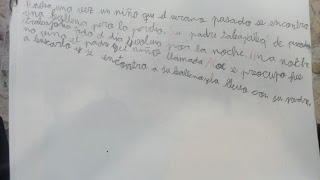 Había una vez un niño que el verano pasado se encontro
una ballena pero la perdio, su padre trabajaba de pescador
trabajaba todo el día y volvia por la noche. Una noche
no venia el padre y el niño llamado Noe se preocupo fue
a buscarlo y se encontro a su ballena y la llevo con su padre.